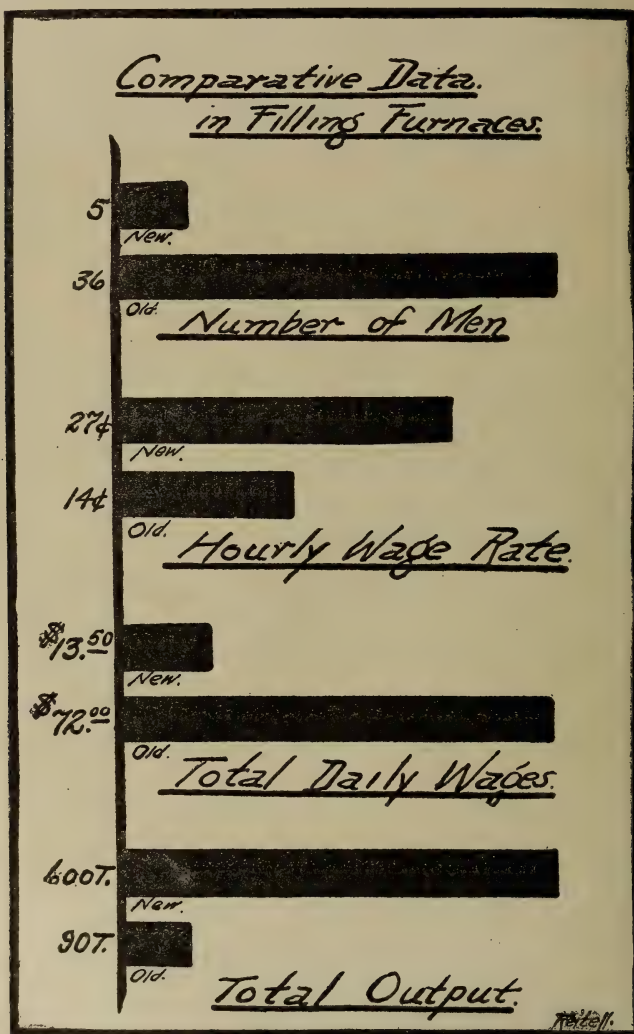 Comparative Data.
in Filling Furnaces.
5
New.
36
Old.
Number of Men
27¢
New.
14¢
Old.
Hourly Wage Rate.
$13.50
New.
$72.00
Old.
Total Daily Wages.
600T.
New.
90T.
Old.
Total Output.
Reitell.